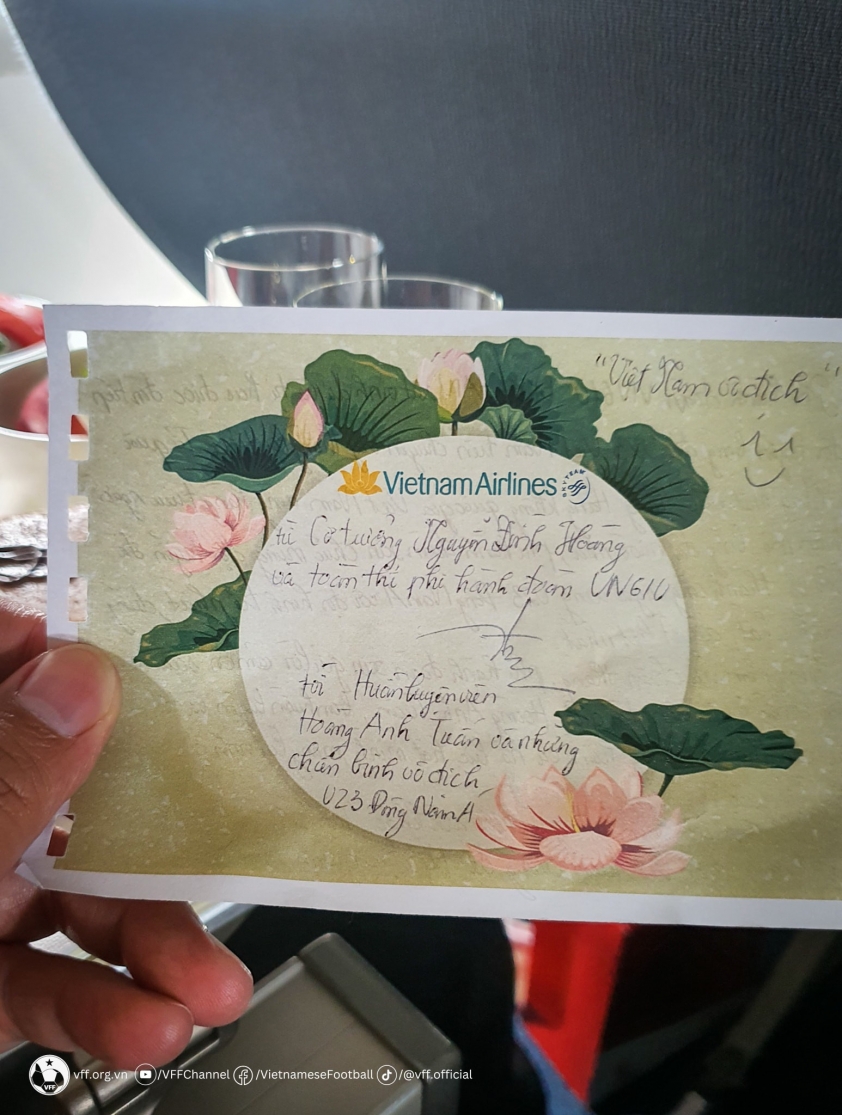 "Việt Nam vô địch"
Vietnam Airlines
SKYTEAM
từ Cơ trưởng Nguyễn Đình Hoàng
và toàn thể phi hành đoàn VN610
tới Huấn luyện viên
Hoàng Anh Tuấn và những
chân binh vô địch
U23 Đông Nam Á
VFF
vff.org.vn /VFFChannel /VietnameseFootball /@vff.official